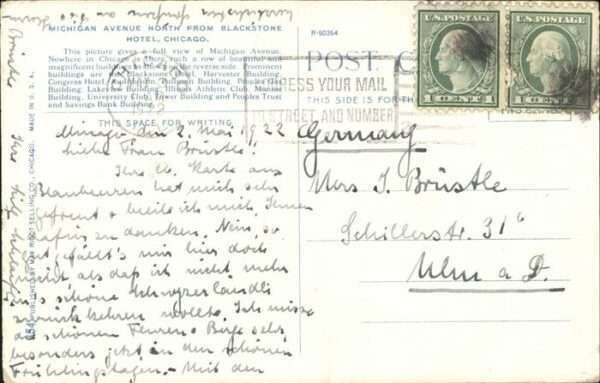 MICHIGAN AVENUE NORTH FROM BLACKSTONE
HOTEL, CHICAGO.
This picture gives a full view of Michigan Avenue.
Nowhere in Chicago is there such a row of beautiful and
magnificent buildings as on the reverse side. Prominent
buildings are the Blackstone Hotel, Harvester Building,
Congress Hotel, Auditorium, Building,
Building, Lakeview Building, Illinois Athletic Club, Monroe
Building, University Club, Tower Building and Peoples Trust
and Savings Bank Building.
THIS SPACE FOR WRITING
R-90364
POST C
THIS SIDE IS FOR TH
ADDRESS YOUR MAIL
TO STREET AND NUMBER
U.S. POSTAGE
1 CENT 1
U.S. POSTAGE
1 CENT
MADE IN U. S. A.
PUBLISHED BY MAX RIGOT SELLING CO., CHICAGO.
Chicago den 2. Mai 1922
Liebe Frau Brüstle!
Ihre lb. Karte aus
Blaubeuren hat mich sehr
gefreut + beeile ich mich Ihnen
dafür zu danken. Nein, so
gut gefällt's mir hier doch
nicht, als daß ich nicht mehr
ins schöne Schwyzerländli
zurück kehren wollte. Ich misse
d. schönen + Berge sehr
besonders jetzt in den schönen
Frühlingstagen. - Mit den
Germany
Mers J. Brüstle
Schillerstr. 31 b
Ulm a D.